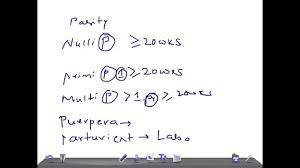 Parity
Nulli P ≥ 20wks
Primi P 1 ≥ 20wks
Multi P > 1, ≥ 20wks
Puerpera →
Parturient → Labo